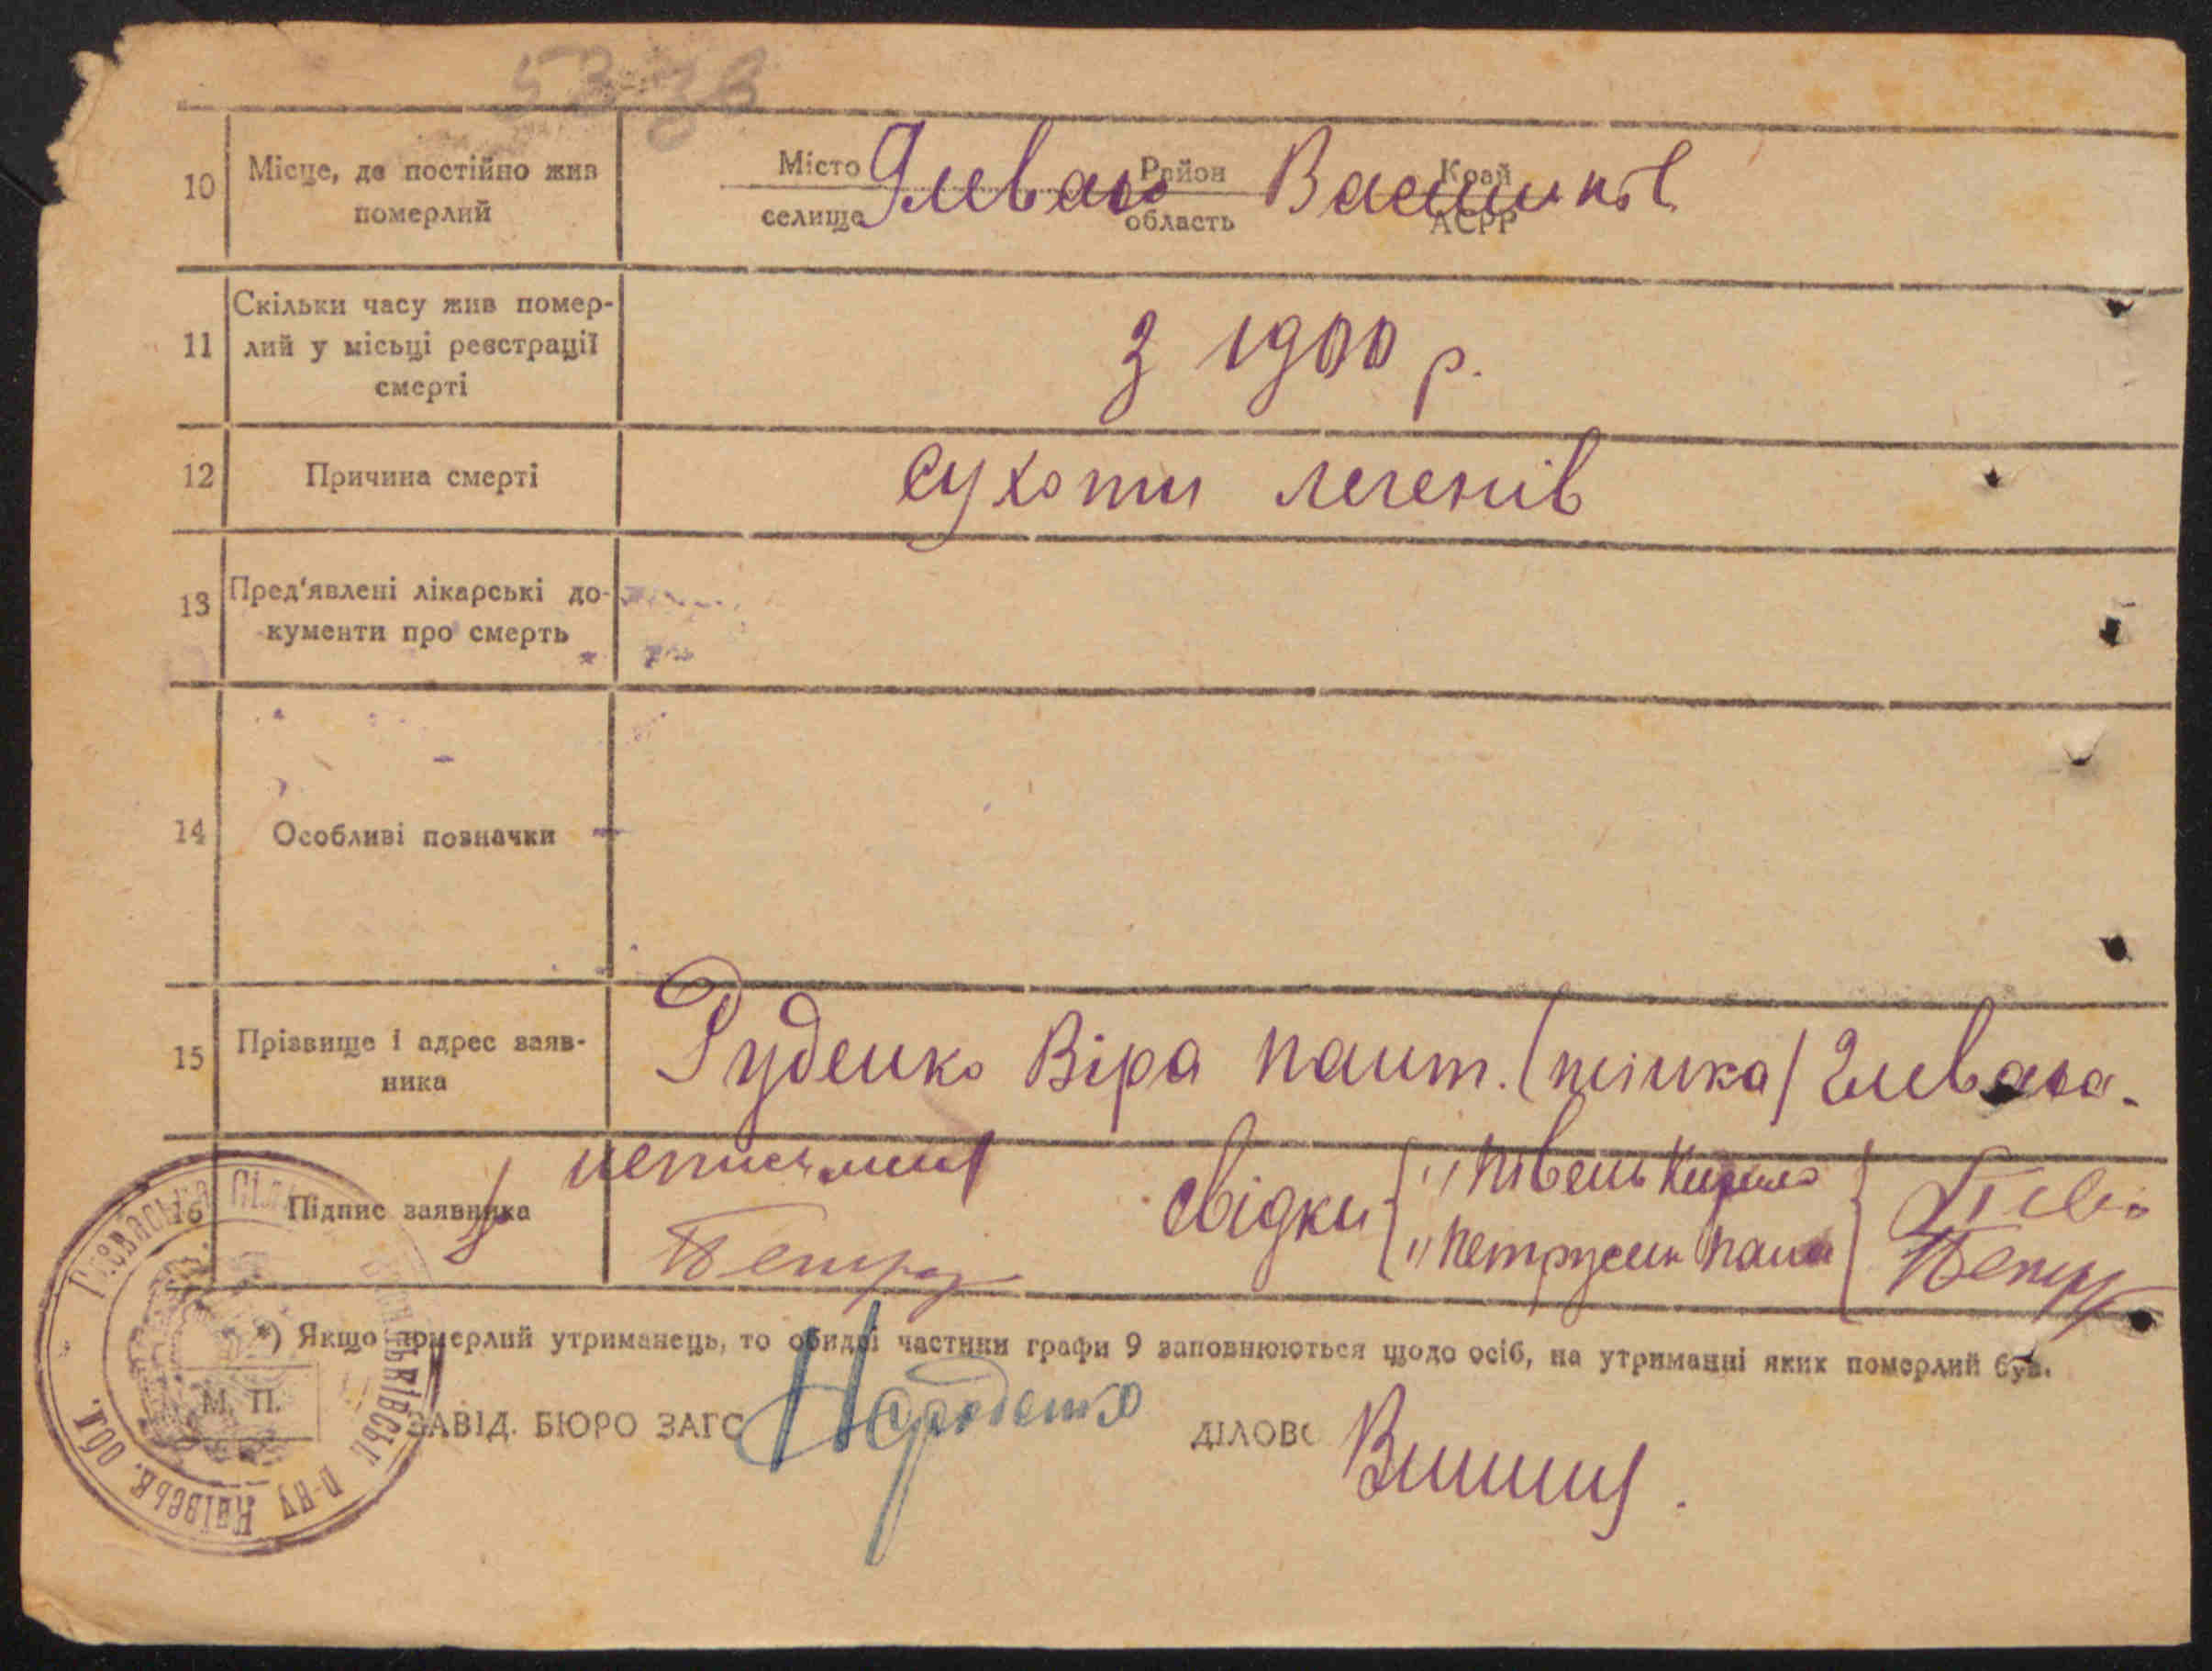 53 зв
10 Місце, де постійно жив померлий
Місто Глеваха Район Васильків Край
селище область АСРР
11 Скільки часу жив помер-
лий у місьці реєстрації
смерті
З 1900 р.
12 Причина смерті
сухоти легенів
13 Пред'явлені лікарські до-
кументи про смерть
14 Особливі позначки
15 Прізвище і адрес заяв-
ника
Руденко Віра Пант. (жінка) Глеваха.
неписьмен
16 Підпис заявника
свідки { " Півень Кирило
" Петрусик }
*) Якщо померлий утриманець, то обидві частини графи 9 заповнюються щодо осіб, на утриманні яких померлий був.
М. П.
ЗАВІД. БЮРО ЗАГС
ДІЛОВ
Васильківськ р-ну Київськ. обл.